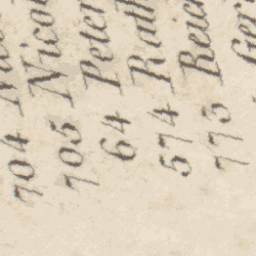 704
705 Nicol
64 Peter
574 Rath
773 Reic
Ger